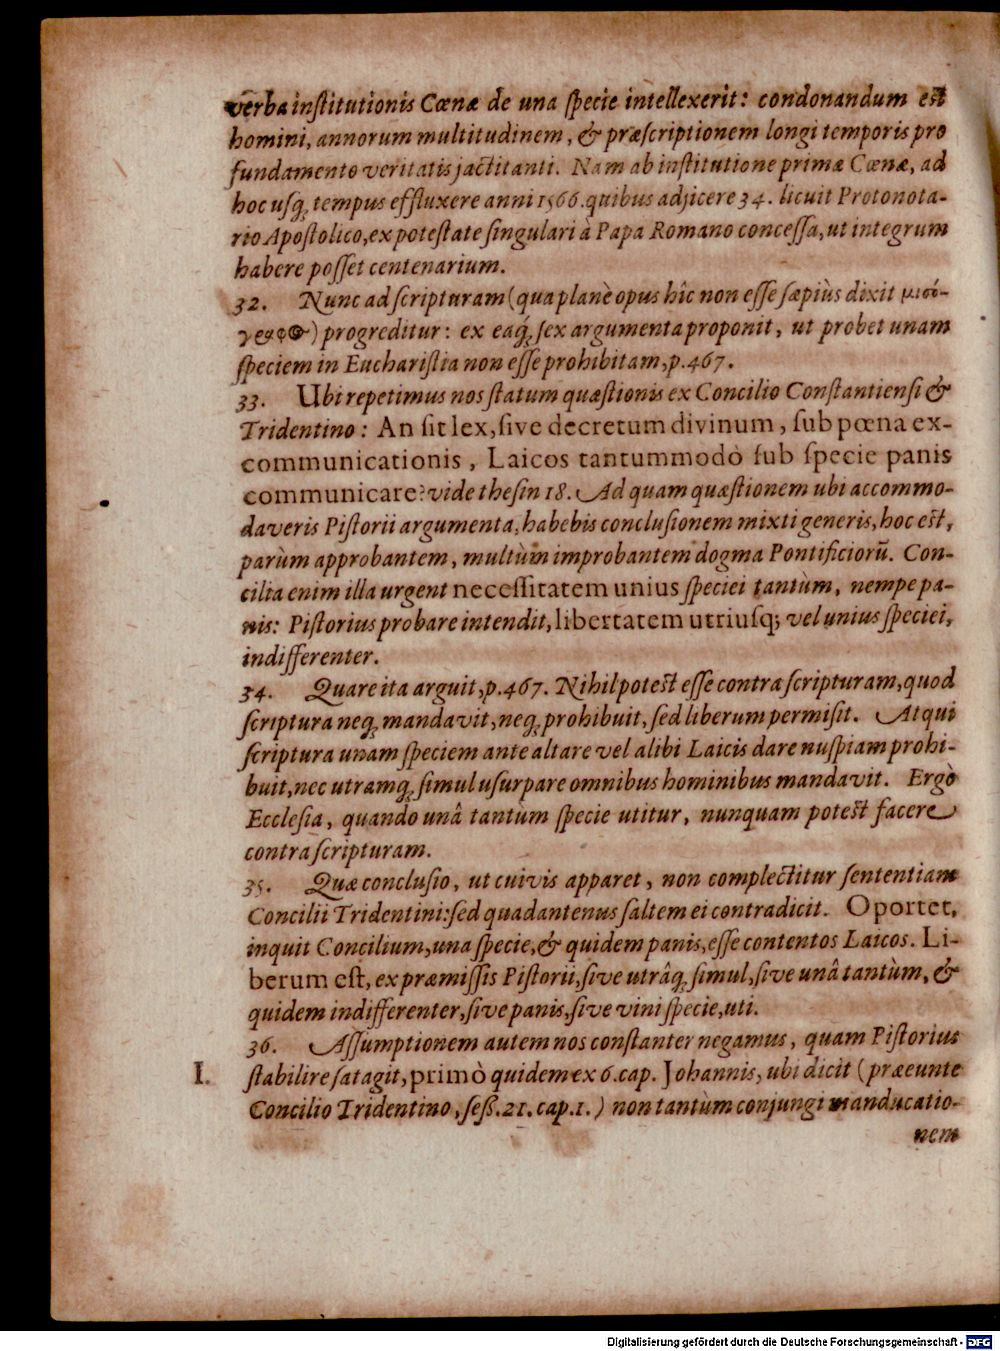 verba institutionis Cœnæ de una specie intellexerit: condonandum est
homini, annorum multitudinem, & præscriptionem longi temporis pro
fundamento veritatis jactitanti. Nam ab institutione primæ Cœnæ, ad
hoc usq; tempus effluxere anni 1566. quibus adjicere 34. licuit Protonota-
rio Apostolico, ex potestate singulari à Papa Romano concessa, ut integrum
habere posset centenarium.
32. Nunc ad scripturam (qua planè opus hîc non esse sæpiùs dixit μισό-
γραφος) progreditur: ex eaq; sex argumenta proponit, ut probet unam
speciem in Eucharistia non esse prohibitam, p. 467.
33. Ubi repetimus nos statum quæstionis ex Concilio Constantiensi &
Tridentino: An sit lex, sive decretum divinum, sub pœna ex-
communicationis, Laicos tantummodò sub specie panis
communicare? vide thesin 18. Ad quam quæstionem ubi accommo-
daveris Pistorii argumenta, habebis conclusionem mixti generis, hoc est,
parùm approbantem, multùm improbantem dogma Pontificiorũ. Con-
cilia enim illa urgent necessitatem unius speciei tantùm, nempe pa-
nis: Pistorius probare intendit, libertatem utriusq; vel unius speciei,
indifferenter.
34. Quare ita arguit, p. 467. Nihil potest esse contra scripturam, quod
scriptura neq; mandavit, neq; prohibuit, sed liberum permisit. Atqui
scriptura unam speciem ante altare vel alibi Laicis dare nuspiam prohi-
buit, nec utramq; simul usurpare omnibus hominibus mandavit. Ergò
Ecclesia, quando unâ tantùm specie utitur, nunquam potest facere
contra scripturam.
35. Quæ conclusio, ut cuivis apparet, non complectitur sententiam
Concilii Tridentini: sed quadantenus saltem ei contradicit. Oportet,
inquit Concilium, una specie, & quidem panis, esse contentos Laicos. Li-
berum est, ex præmissis Pistorii, sive utrâq; simul, sive unâ tantùm, &
quidem indifferenter, sive panis, sive vini specie, uti.
36. Assumptionem autem nos constanter negamus, quam Pistorius
I. stabilire satagit, primò quidem ex 6. cap. Johannis, ubi dicit (præeunte
Concilio Tridentino, seß. 21. cap. 1.) non tantùm conjungi manducatio-
nem
Digitalisierung gefördert durch die Deutsche Forschungsgemeinschaft - DFG